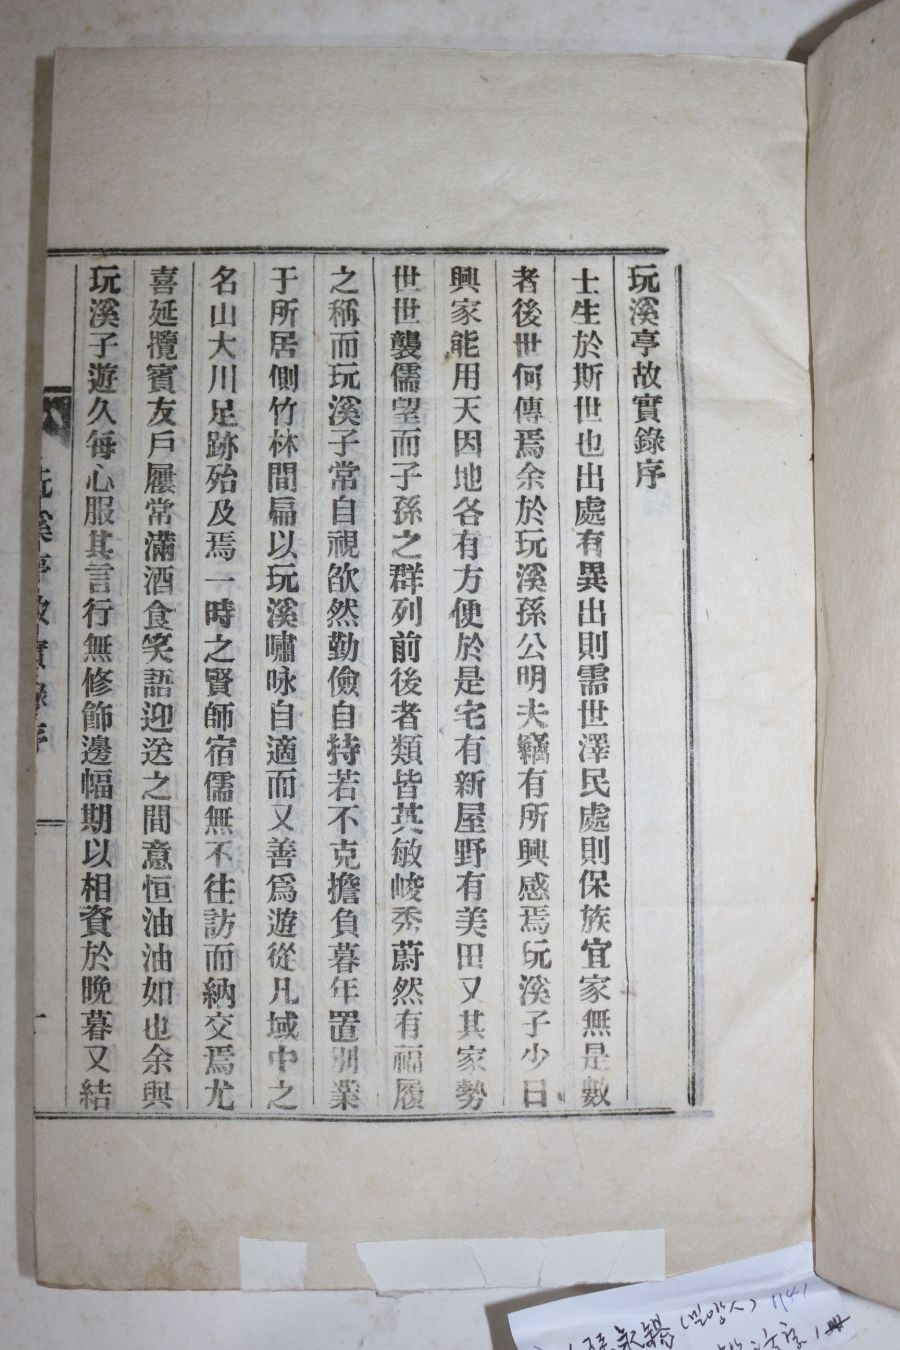 玩溪亭故實錄序
士生於斯世也出處有異出則需世澤民處則保族宜家無是數
者後世何傳焉余於玩溪孫公明夫竊有所興感焉玩溪子少日
興家能用天因地各有方便於是宅有新屋野有美田又其家勢
世世襲儒望而子孫之群列前後者類皆英敏峻秀蔚然有福履
之稱而玩溪子常自視欿然勤儉自持若不克擔負暮年置別業
于所居側竹林間扁以玩溪嘯咏自適而又善爲遊從凡域中之
名山大川足跡殆及焉一時之賢師宿儒無不往訪而納交焉尤
喜延攬賓友戶屨常滿酒食笑語迎送之間意恒油油如也余與
玩溪子遊久每心服其言行無修飾邊幅期以相資於晚暮又結
玩溪亭故實錄序
一
(밀양人)